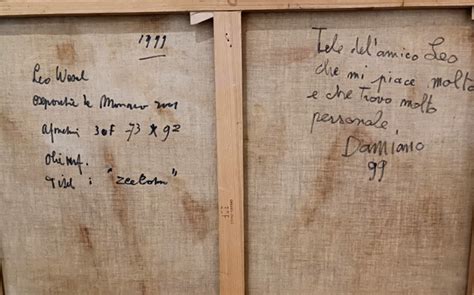 1999
Leo
Monaco 2001
30F 73 x 92
Olieverf.
Titel : "
Tele dell'amico Leo
che mi piace molto
e che Trovo molto
personale
Damiano
99